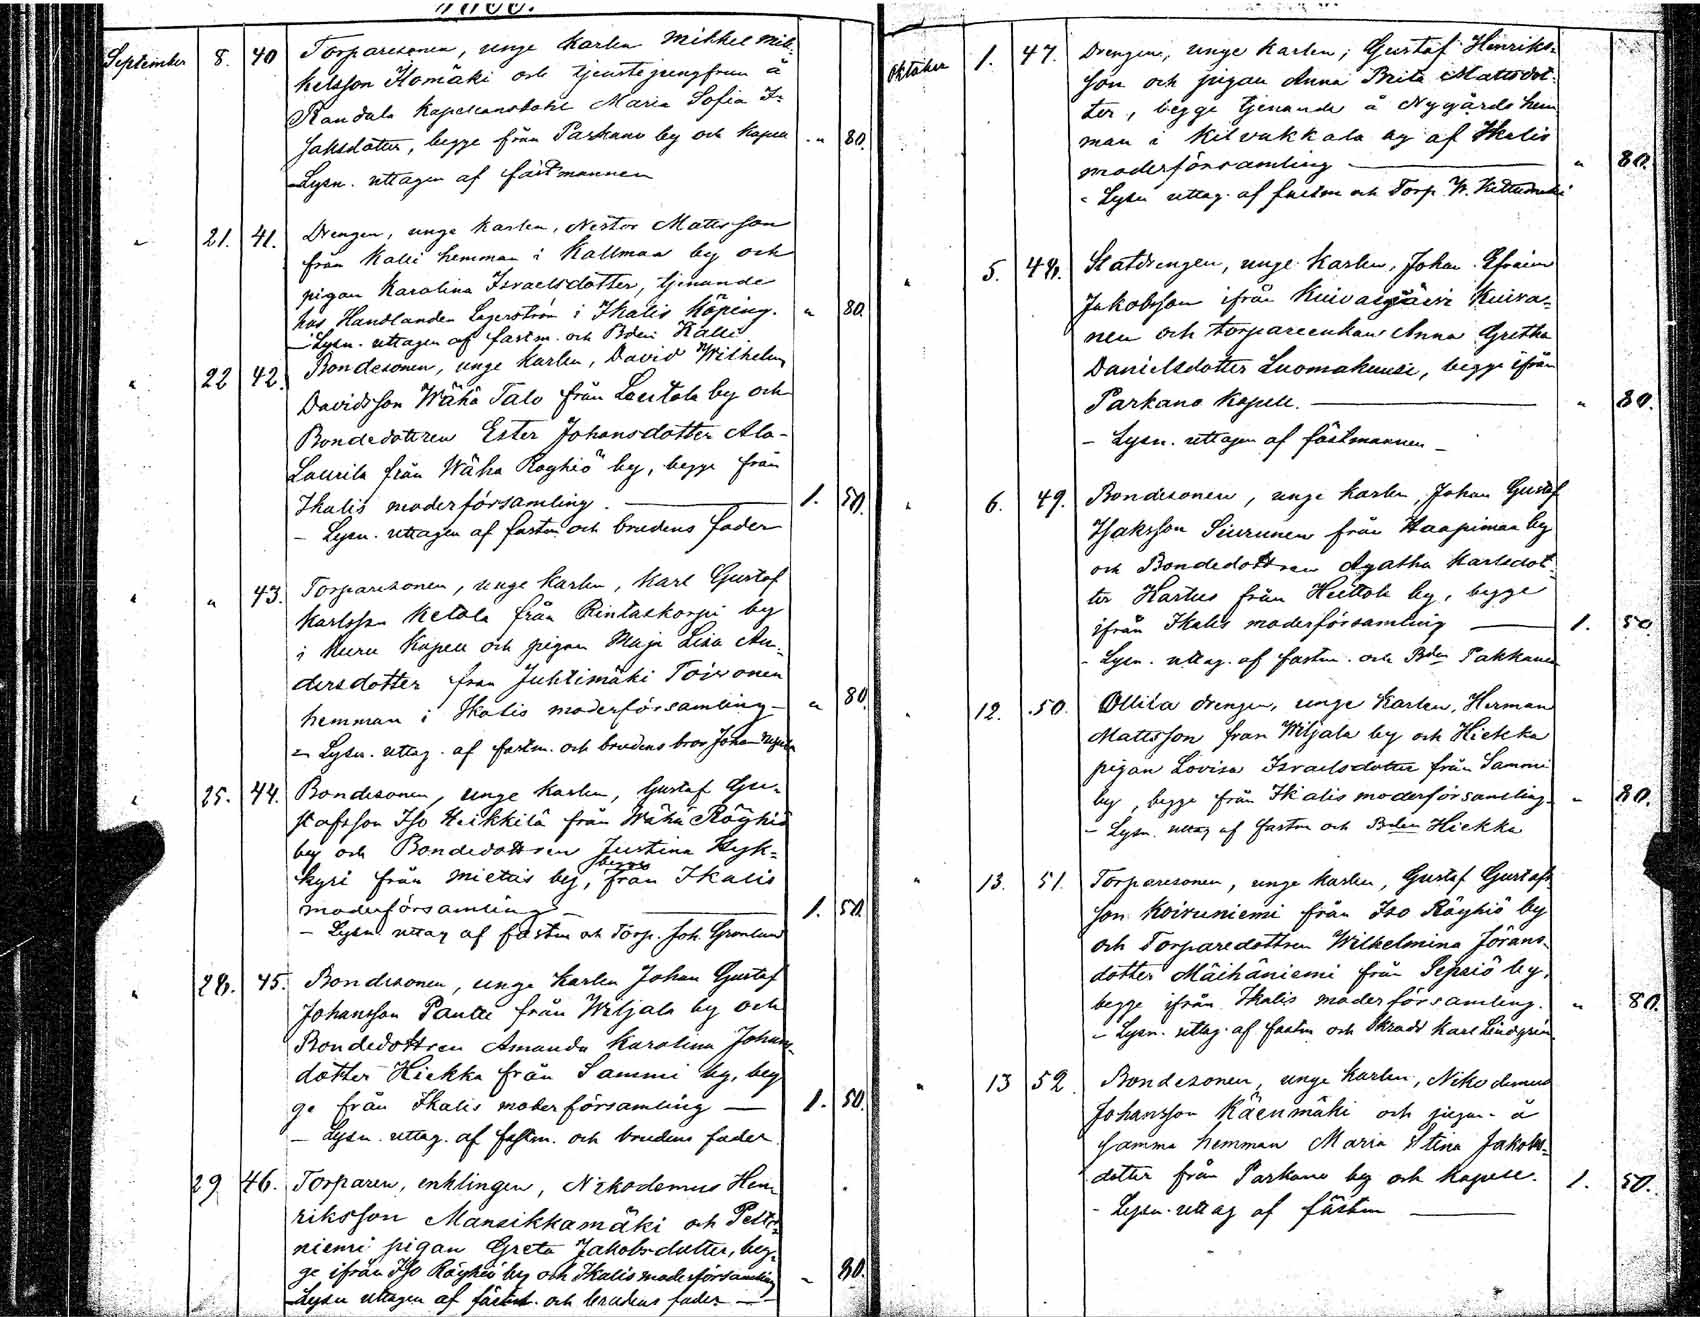 September 8. 40 Torparesonen, unge karlen Mikkel Mik-
kelsson Kömäki och tjenstejungfrun å
Randala Kapellansbohl Maria Sofia I-
saksdotter, begge från Parkano by och Kapell „ 80.
– Lysn. uttagen af fästmannen
„ 21. 41. Drengen, unge karlen, Nestor Mattsson
från Kalli hemman i Kallmaa by och
pigan Karolina Israelsdotter, tjenande
hos Handlanden Lagerström i Ikalis Köping. „ 80.
– Lysn. uttagen af fästm. och Bden Kalli
„ 22 42. Bondesonen, unge karlen, David Wilhelm
Davidsson Wähä Talo från Luotola by och
Bondedottren Ester Johansdotter Ala-
Laurila från Wäha Röyhiö by, begge från
Ikalis moderförsamling. — 1. 50.
– Lysn. uttagen af fästm och brudens fader
„ „ 43. Torparesonen, unge karlen, Karl Gustaf
Karlsson Ketola från Rintaskorpi by
i Kuru Kapell och pigan Maja Lisa An-
dersdotter från Juhtimäki Toivonen
hemman i Ikalis moderförsamling – „ 80.
– Lysn. uttag. af fästm. och brudens bror Johan
„ 25. 44. Bondesonen, unge karlen, Gustaf Gu-
stafsson Iso Heikkilä från Wähä Röyhiö
by och Bondedottren Justina Kyk-
kyri från Mietis by, begge från Ikalis
moderförsamling — 1. 50.
– Lysn uttag af fästm och Torp. Joh. Grönlund
„ 28. 45. Bondesonen, unge karlen Johan Gustaf
Johansson Pantti från Wiljala by och
Bondedottren Amanda Karolina Johans-
dotter Hiekka från Sammi by, beg
ge från Ikalis moderförsamling — 1. 50.
– Lysn. uttag. af fästm. och brudens fader.
29 46. Torparen, enklingen, Nikodemus Hen-
riksson Mansikkamäki och Petä-
niemi pigan Greta Jakobsdotter, beg-
ge ifrån Iso Röyhiö by och Ikalis moderförsamling „ 80.
– Lysn uttagen af fästm. och brudens fader —
Oktober 1. 47. Drengen, unge karlen, Gustaf Henriks-
son och pigan Anna Brita Mattsdot-
ter, begge tjenande å Nygårds hem
man i Kilvakkala by af Ikalis
moderförsamling — „ 80.
– Lysn uttag. af fästm och Torp. W.
„ 5. 48. Statdrengen, unge karlen, Johan Efraim
Jakobsson ifrån Kuivasjärvi Kuiva-
nen och torpareenkan Anna Gretha
Danielsdotter Luomakuusi, begge ifrån
Parkano Kapell. — „ 80.
– Lysn. uttagen af fästmannen –
„ 6. 49. Bondesonen, unge karlen, Johan Gustaf
Isaksson Siurunen från Haapimaa by
och Bondedottren Agatha Karlsdot-
ter Hartus från Heittola by, begge
ifrån Ikalis moderförsamling — 1. 50
– Lysn. uttag. af fästm. och Bden Pakkanen
„ 12. 50. Ollila drengen, unge karlen, Herman
Mattsson från Wiljala by och Hiekka
pigan Lovisa Israelsdotter från Sammi
by, begge från Ikalis moderförsamling – „ 80.
– Lysn. uttag af fästm och Bden Hiekka
„ 13. 51. Torparesonen, unge karlen, Gustaf Gustafs
son Koivuniemi från Iso Röyhiö by
och Torparedottren Wilhelmina Jörans-
dotter Mäihäniemi från Sepsiö by,
begge ifrån Ikalis moderförsamling. „ 80.
– Lysn. uttag. af fästm och Skradd Karl Lindgren
„ 13 52. Bondesonen, unge karlen, Nikodemus
Johansson Käenmäki och pigan å
samma hemman Maria Stina Jakobs-
dotter från Parkano by och kapell. 1. 50.
– Lysn. uttag af fästm —